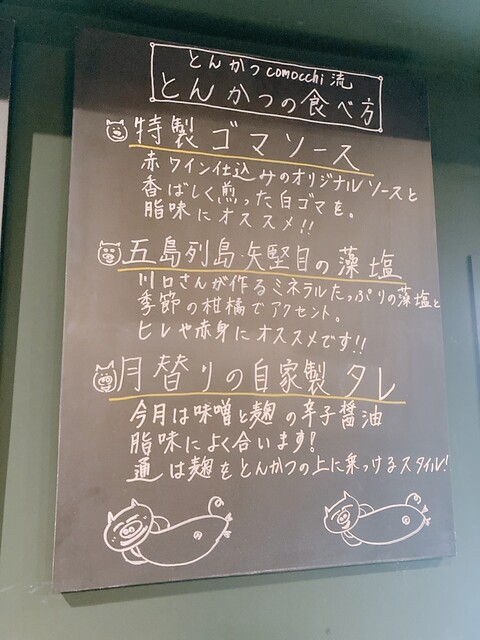 とんかつcomocchi流
とんかつの食べ方
特製ゴマソース
赤ワイン仕込みのオリジナルソースと
香ばしく煎った白ゴマを。
脂味にオススメ!!
五島列島矢堅目の藻塩
川口さんが作るミネラルたっぷりの藻塩と
季節の柑橘でアクセント。
ヒレや赤身にオススメです!!
月替りの自家製タレ
今月は味噌と麹の辛子醤油
脂味によく合います!
通は麹をとんかつの上に乗っけるスタイル!